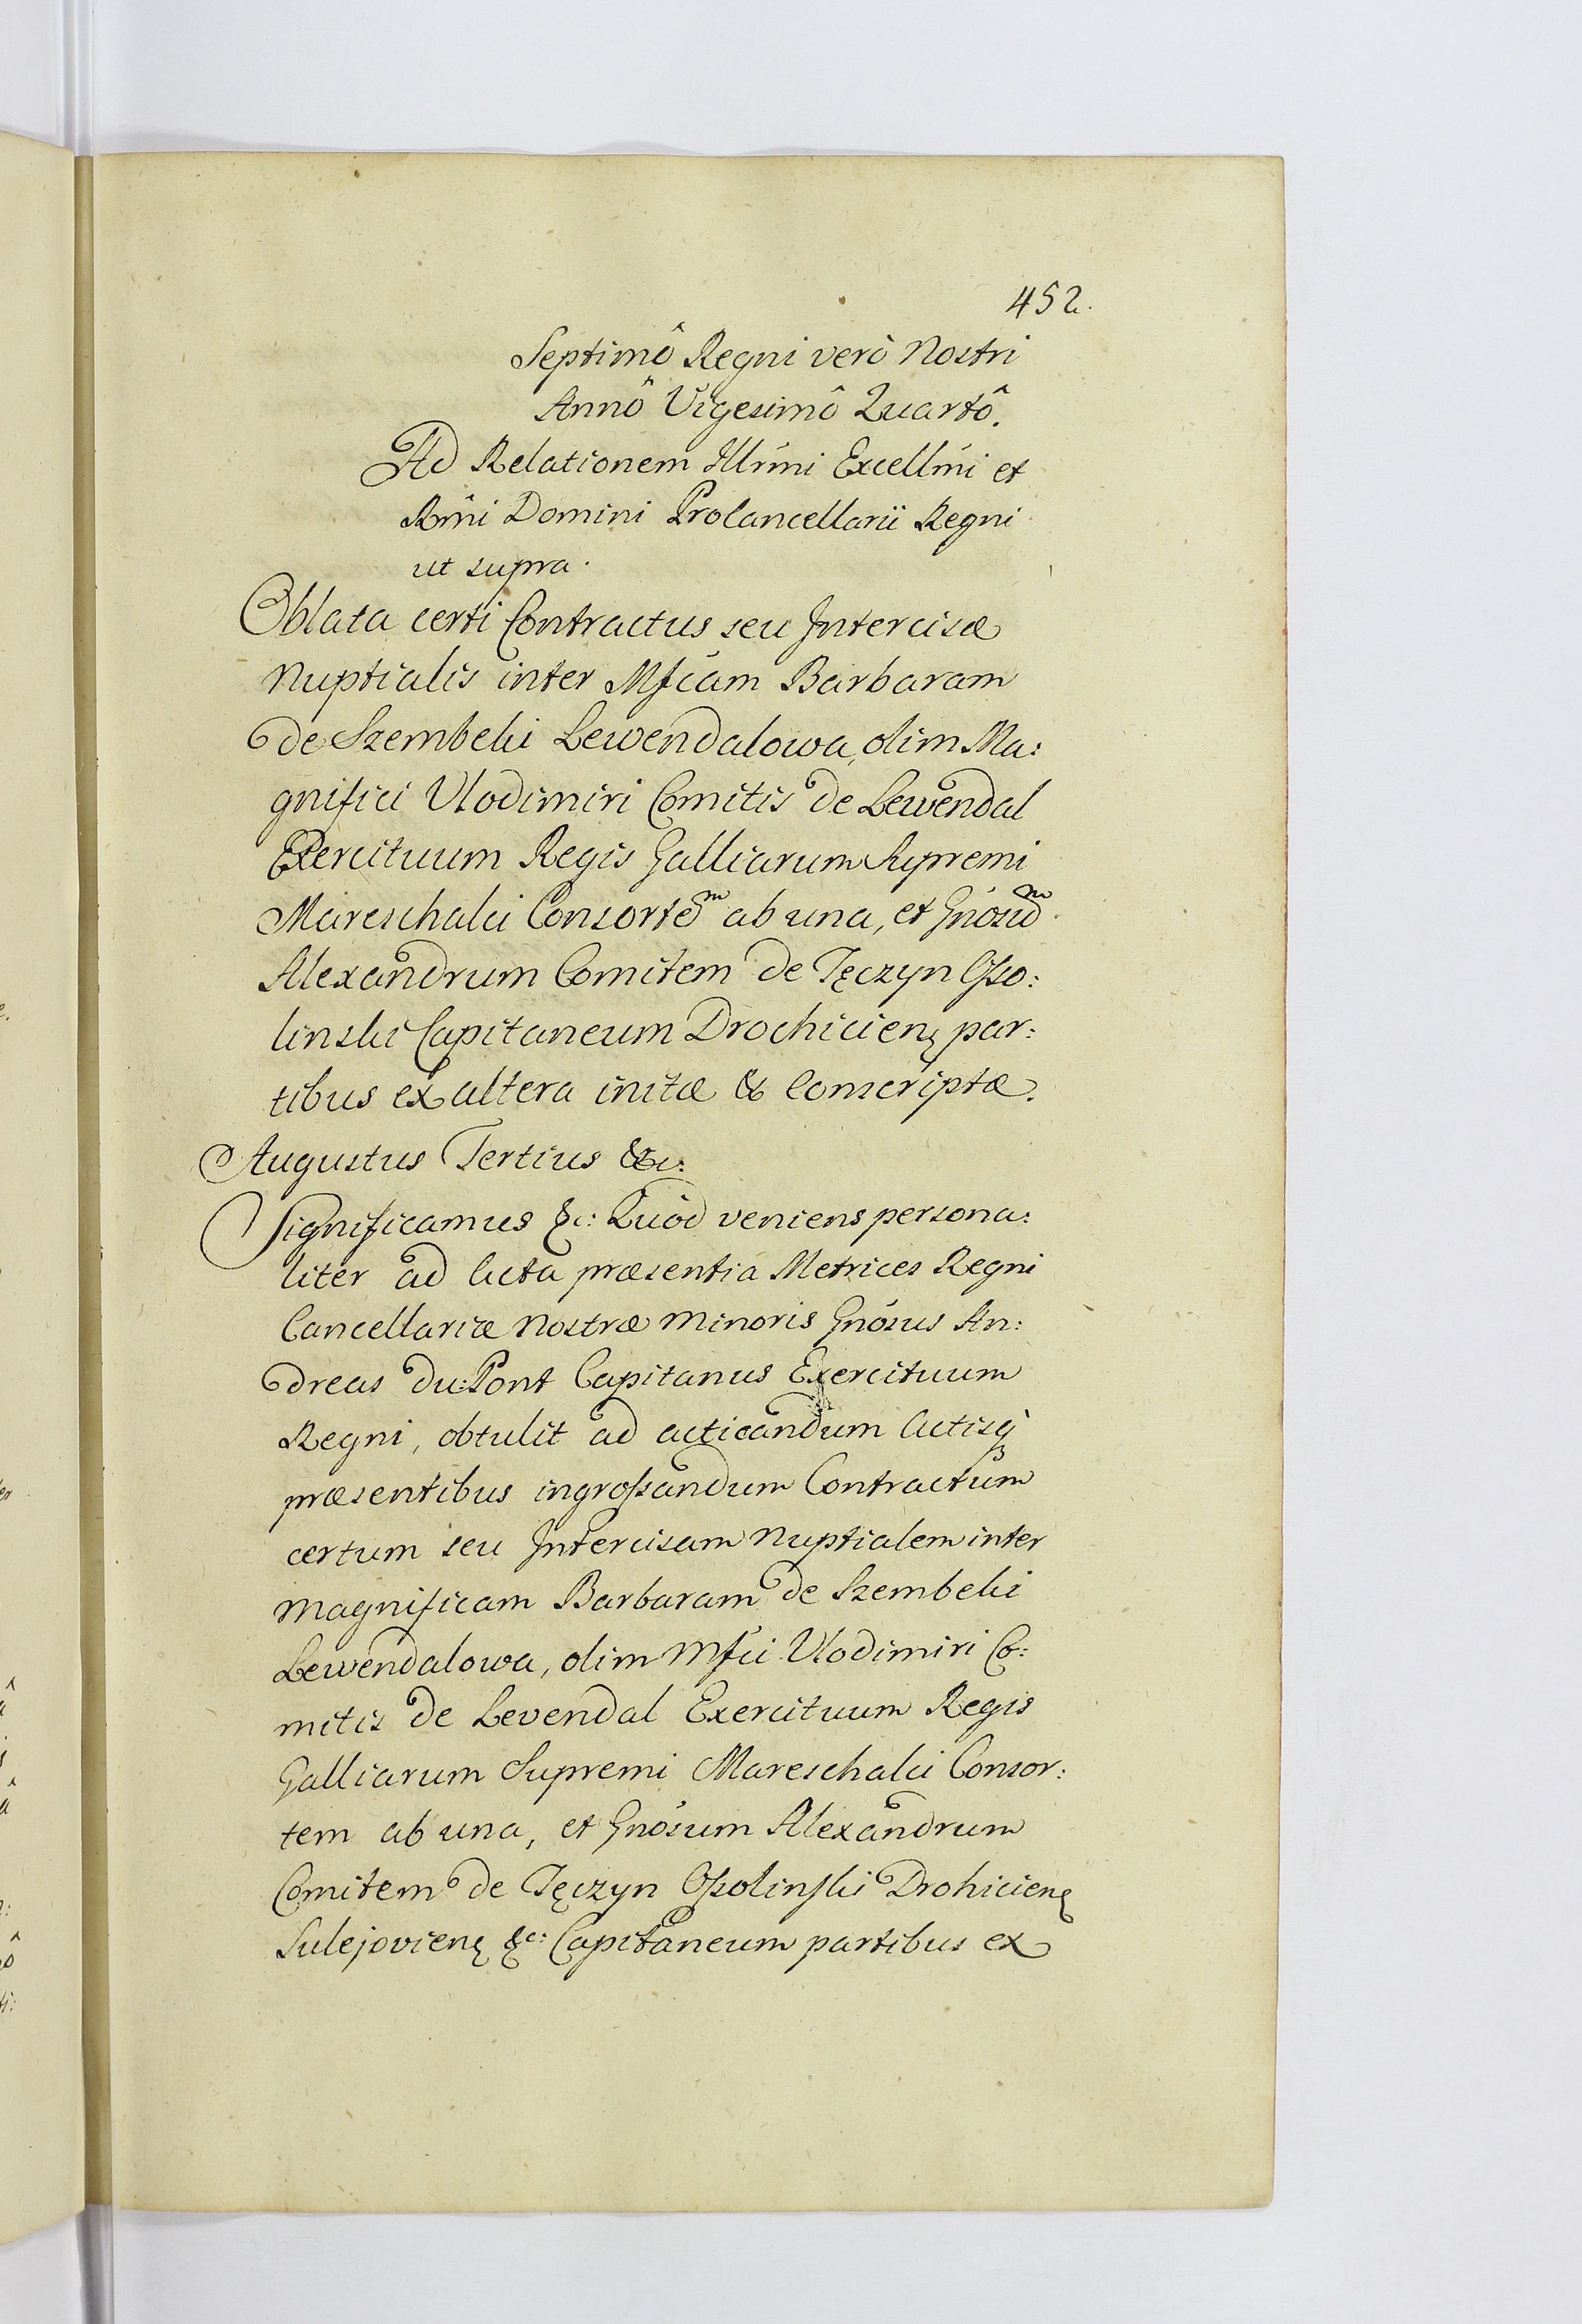 452.
Septimô Regni verò Nostri
Annô Vigesimô Quartô.
Ad Relationem Illmi Excellmi et
Rmi Domini ProCancellarii Regni
ut supra.
Oblata certi Contractus seu Intercisæ
Nuptialis inter Mfcam Barbaram
de Szembeki Lewendalowa, olim Ma:
gnifici Vlodimiri Comitis de Lewendal
Exercituum Regis Galliarum Supremi
Mareschalci Consortem ab una, et Gnosum
Alexandrum Comitem de Tęczyn Osso:
linski Capitaneum Drochicienę par:
tibus ex altera initæ & Conscriptæ.
Augustus Tertius &c:
Significamus &c: Quòd veniens persona:
liter ad Acta præsentia Metrices Regni
Cancellariæ Nostræ Minoris Gnosus An:
dreas du:Pont Capitanus Exercituum
Regni, obtulit ad acticandum Actisq
præsentibus ingrossandum Contractum
certum seu Intercisam Nuptialem inter
Magnificam Barbaram de Szembeki
Lewendalowa, olim Mfci Vlodimiri Co:
mitis de Levendal Exercituum Regis
Galliarum Supremi Mareschalci Consor:
tem ab una, et Gnosum Alexandrum
Comitem de Tęczyn Ossolinski Drohicienę
Sulejovienę &c: Capitaneum partibus ex